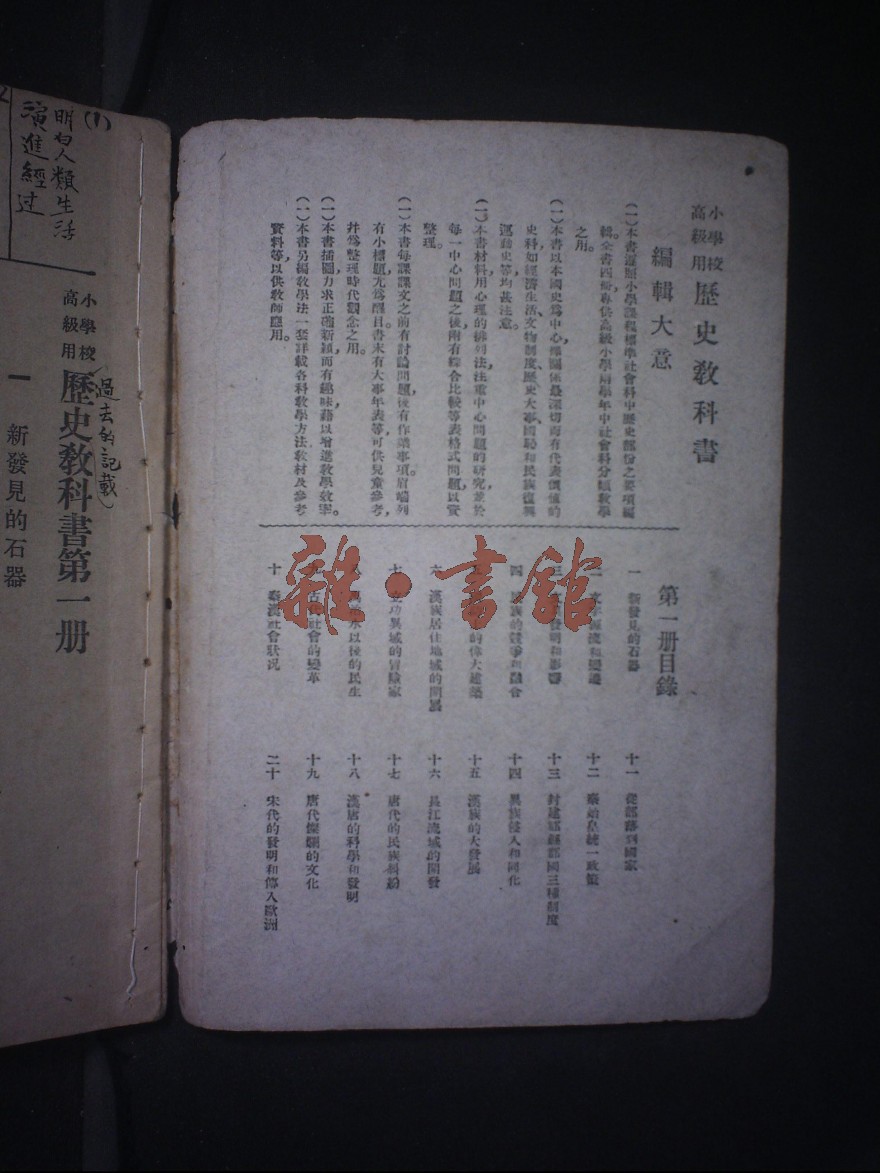 小學校
高級用
歷史教科書
編輯大意
(一)本書遵照小學課程標準社會科中歷史部份之要項編
輯。全書四冊,專供高級小學兩學年中社會科分類教學
之用。
(一)本書以本國史爲中心,擇關係最深切而有代表價值的
史料,如經濟生活、文物制度、歷史大事、國恥和民族復興
運動史等,均甚注意。
(一)本書材料,用心理的排列法,注重中心問題的研究,並於
每一中心問題之後,附有綜合比較等表格式問題,以資
整理。
(一)本書每課課文之前有討論問題,後有作業事項。眉端列
有小標題,尤爲醒目。書末有大事年表等,可供兒童參考,
幷爲整理時代觀念之用。
(一)本書插圖,力求正確新穎而有趣味,藉以增進教學效率。
(一)本書另編教學法一套,詳載各科教學方法、教材及參考
資料等,以供教師應用。
第一册目錄
一 新發見的石器
四 民族的競爭和融合
的偉大建築
六 漢族居住地域的開展
七 立功異域的冒險家
以後的民生
九 古代社會的變革
十 秦漢社會狀況
十一 從部落到國家
十二 秦始皇統一政策
十三 封建郡縣郡國三種制度
十四 異族侵入和同化
十五 漢族的大發展
十六 長江流域的開發
十七 唐代的民族糾紛
十八 漢唐的科學和發明
十九 唐代燦爛的文化
二十 宋代的發明和傳入歐洲
雜·書館
(1)
明白人類生活
演進經过
小學校
高級用
歷史教科書第一册
(過去的記載)
一 新發見的石器